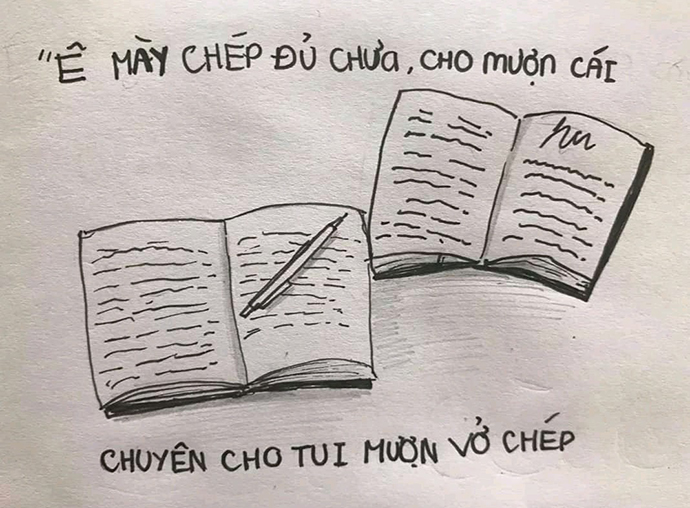 "Ê MÀY CHÉP ĐỦ CHƯA, CHO MƯỢN CÁI
CHUYÊN CHO TUI MƯỢN VỞ CHÉP